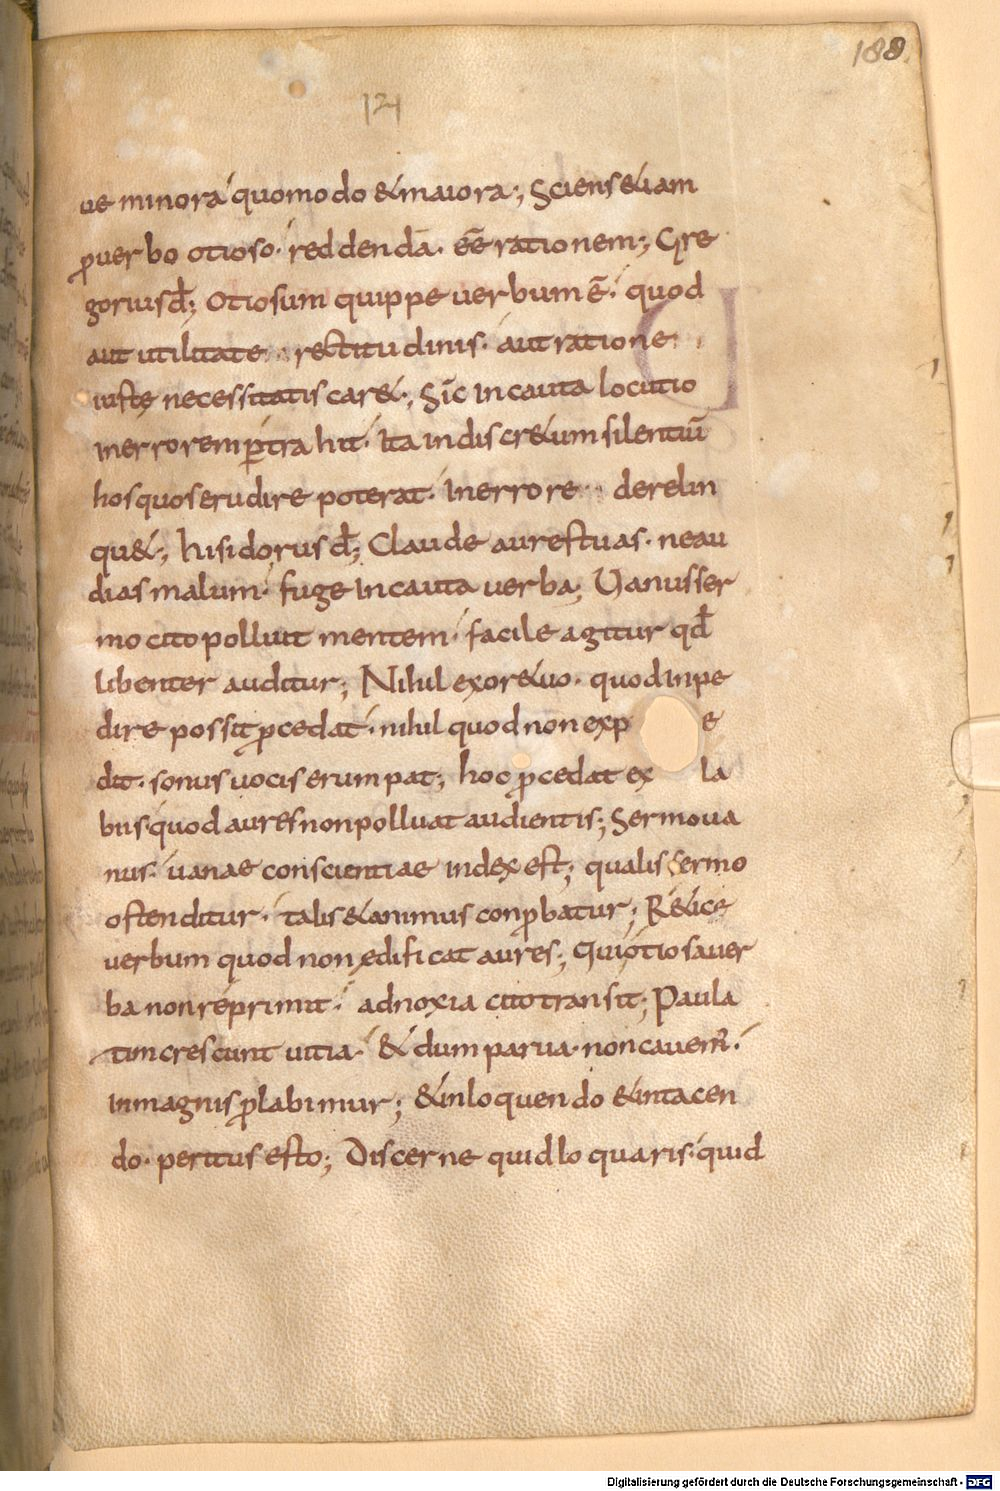 188
121
ue minora quomodo & maiora; Sciens &iam
ꝓuerbo otioso· reddendā· eē rationem; Gre
gorius đ; Otiosum quippe uerbum ē· quod
aut utilitate rectitudinis· aut ratione
iuste necessitatis car&; Sīc incauta locutio
inerrorem ꝑtrahit· Ita indiscr&um silentiū
hos quos erudire poterat· inerrore derelin
qu&; hisidorus đ; Claude aures tuas· ne au
dias malum· fuge incauta uerba; Uanus ser
mo cito polluit mentem· facile agitur qđ
libenter auditur; Nihil ex ore tuo· quod inpe
dire possit ꝓcedat· nihil quod non exp e
dit· sonus uocis erumpat; hoc ꝓcedat ex la
biis quod aures non polluat audientis; Sermo ua
nus· uanae conscientiae index est; qualis sermo
ostenditur· talis & animus conꝓbatur; R&ice
uerbum quod non edificat aures; Qui otiosa uer
ba non reprimit· ad noxia cito transit; Paula
tim crescunt uitia· & dum parua· non cauem̄·
in magnis ꝓlabimur; & in loquendo & in tacen
do· peritus esto; Discerne quid loquaris· quid
Digitalisierung gefördert durch die Deutsche Forschungsgemeinschaft - DFG